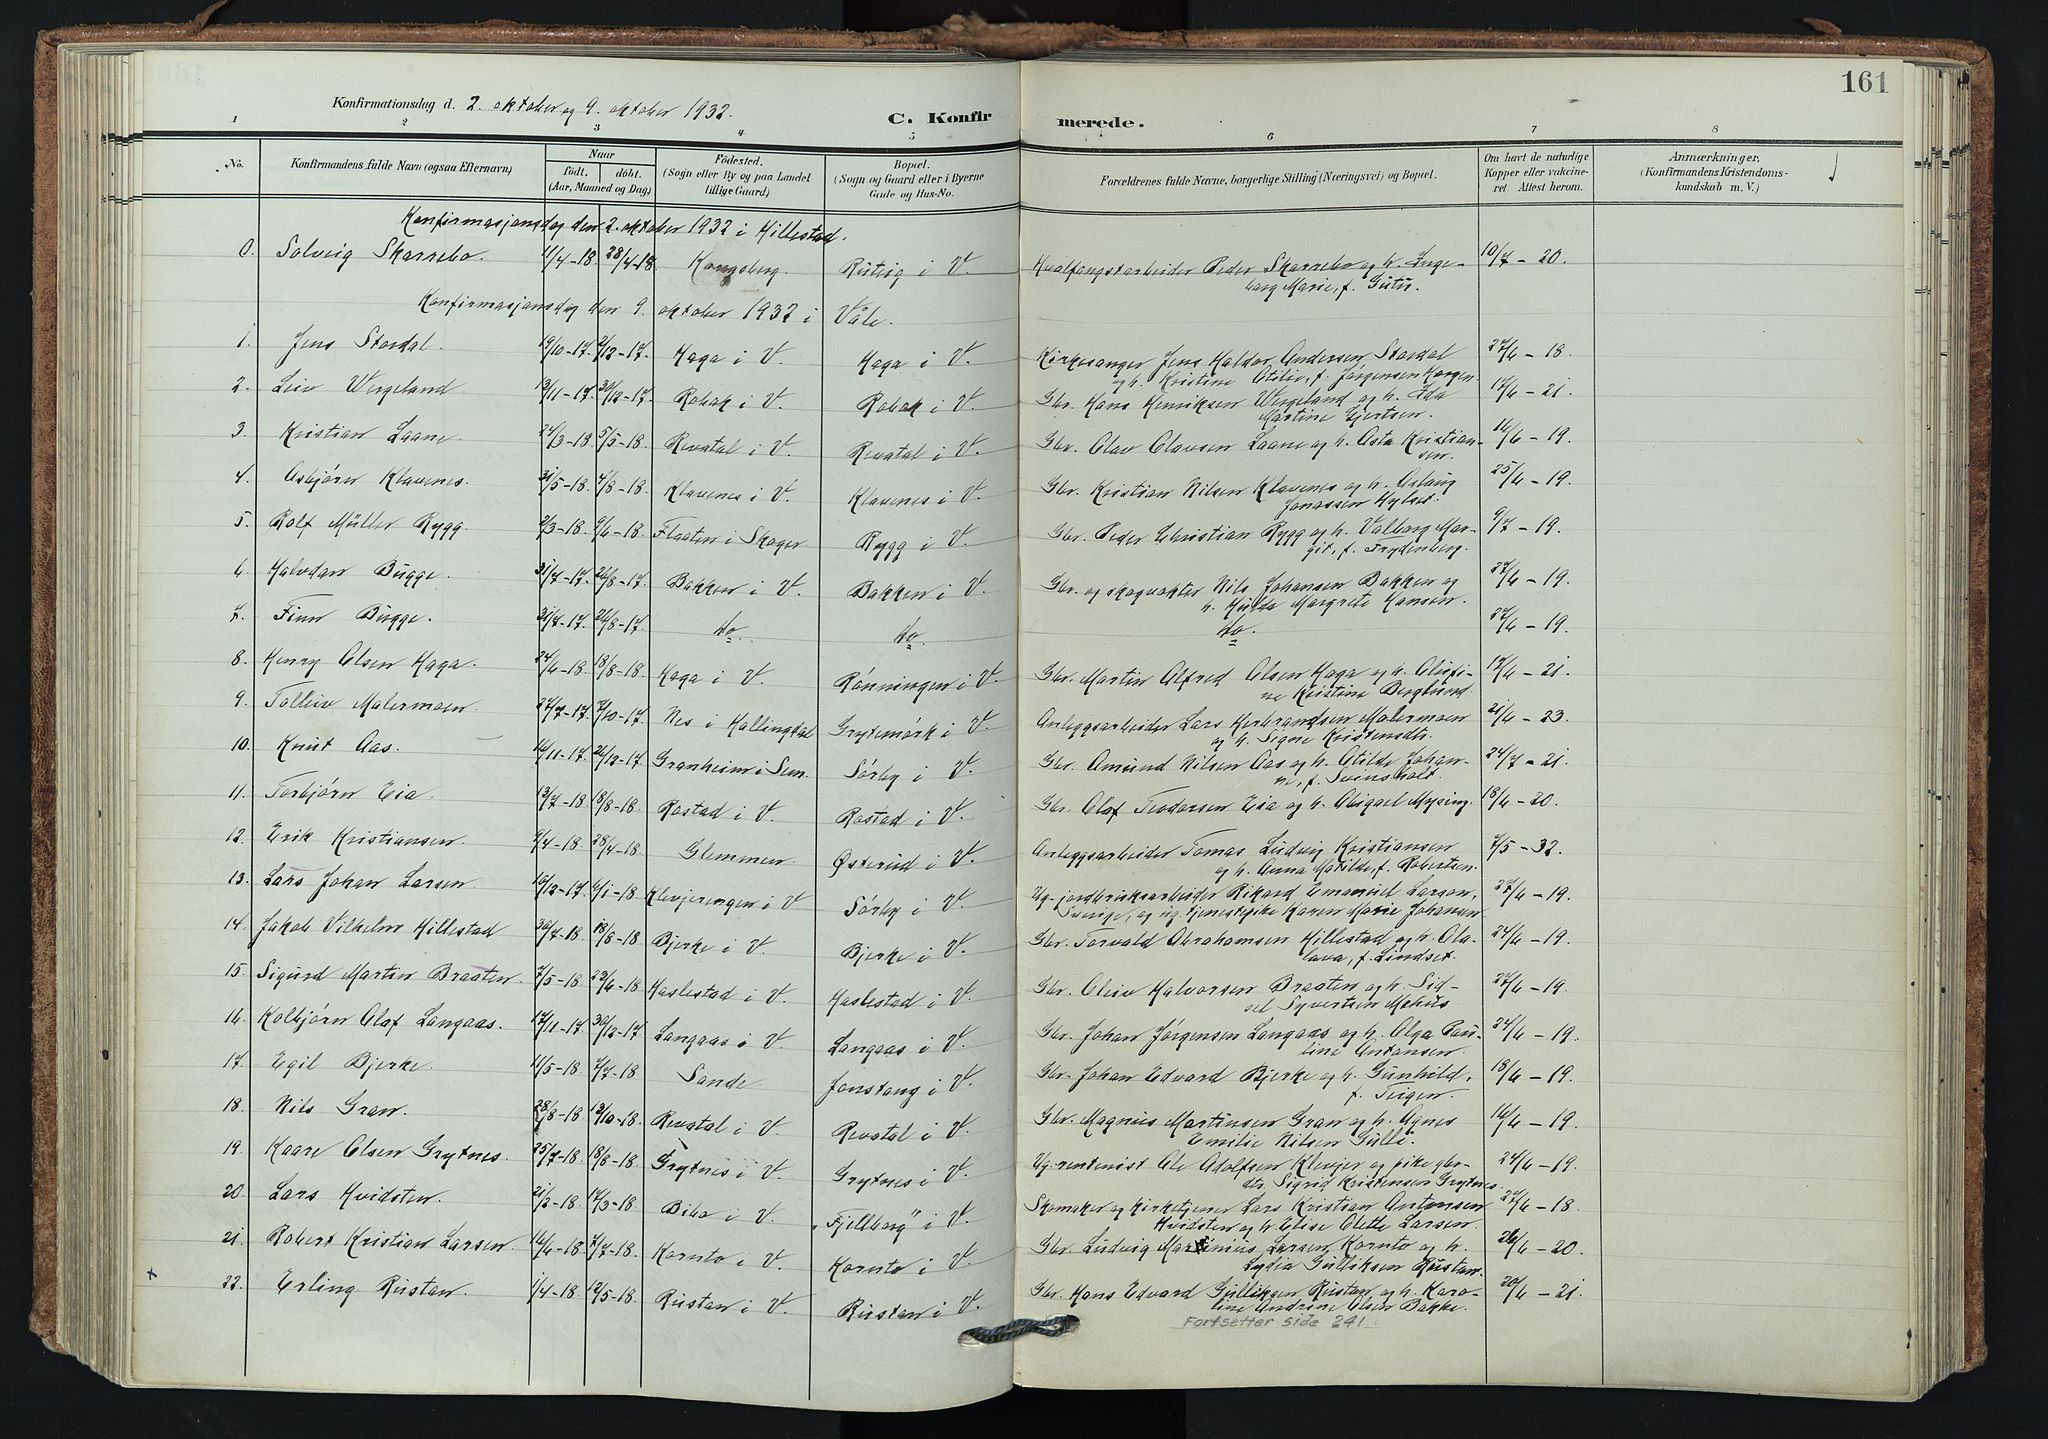 161
Konfirmationsdag d. 2. oktober og 9. oktober 1932.
C. Konfirmerede.
1 2 3 4 5 6 7 8
No.
Konfirmandens fulde Navn (ogsaa Efternavn)
Naar
födt. döbt.
(Aar, Maaned og Dag)
Födested.
(Sogn eller By og paa Landet
tillige Gaard)
Bopæl.
(Sogn og Gaard eller i Byerne
Gade og Hus-No.
Forældrenes fulde Navne, borgerlige Stilling (Næringsvei) og Bopæl.
Om havt de naturlige
Kopper eller vakcine-
ret. Attest herom.
Anmærkninger,
(Konfirmandens Kristendoms-
kundskab m. V.)
Konfirmasjonsdag den 2. oktober 1932 i Hillestad.
0. Solveig Skarrebo. 11/4-18 28/4-18. Kongsberg. Rustig i V. Hvalfangstarbeider Peder Skarrebo og h. Inge- 10/7-20.
borg Marie, f. Gutu.
Konfirmasjonsdag den 9. oktober 1932 i Våle.
1. Jens Stordal. 19/10-17 2/12-17. Haga i V. Haga i V. Kirkesanger Jens Haldor Andersen Stordal 27/6-18.
og h. Kristine Otilie, f. Jørgensen Horgen.
2. Leiv Wergeland. 13/11-17. 30/12-17. Robak i V. Robak i V. Gbr. Hans Henriksen Wergeland og h. Ida 17/6-21.
Martine Ejertsen.
3. Kristian Laane. 24/3-18. 5/5-18. Revatal i V. Revatal i V. Gbr. Olav Olavsen Laane og h. Asta Kristian- 16/6-19.
sen.
4. Asbjørn Klavenes. 31/5-18. 4/8-18. Klavenes i V. Klavenes i V. Gbr. Kristian Nilsen Klavenes og h. Aslaug 25/6-19.
Jonassen
5. Rolf Müller Rygg. 2/3-18. 9/6-18. Flaaten i Skoger. Rygg i V. Gbr. Peder Christian Rygg og h. Valborg Mar- 9/7-19.
git, f. Frydenberg.
6. Halvdan Bugge. 31/7-17. 26/8-17. Bakken i V. Bakken i V. Gbr. og skogvokter Nils Johansen Bakken og 27/6-19.
h. Hulda Margrete Hansen.
7. Finn Bugge. 31/7-17. 26/8-17. do. do. do. 27/6-19.
8. Henry Olsen Haga. 24/6-18. 18/8-18. Haga i V. Rønningen i V. Gbr. Martin Alfred Olsen Haga og h. Olufi- 17/6-21.
ne Kristine Berglund.
9. Tolleiv Malermoen. 27/7-17. 7/10-17. Nes i Hallingdal Grytemørk i V. Anleggsarbeider Lars Herbrandsen Malermoen 21/6-23.
og h. Signe Kristensdtr.
10. Knut Aas. 16/11-17. 26/12-17. Granheim i Sem. Sørby i V. Gbr. Amund Nilsen Aas og h. Otilde Johan- 24/7-21.
ne, f. Svinsholt.
11. Torbjørn Eia. 13/7-18. 18/8-18. Rostad i V. Rostad i V. Gbr. Olaf Teodorsen Eia og h. Abigael Mysing. 18/6-20.
12. Erik Kristiansen. 9/4-18. 28/4-18. Glemmen. Østerud i V. Anleggsarbeider Tomas Ludvig Kristiansen 7/5-32.
og h. Anna Matilde, f. Robertsen.
13. Lars Johan Larsen. 15/12-17. 6/1-18. Klevjerengen i V. Sørby i V. Ug. jordbruksarbeider Rikard Emanuel Larson, 27/6-19.
Sverige, og ug. tjenestepike Karen Marie Johansen.
14. Jakob Vilhelm Hillestad 30/7-18. 18/8-18. Bjerke i V. Bjerke i V. Gbr. Torvald Abrahamsen Hillestad og h. Ola- 24/6-19.
lava, f. Lindset.
15. Sigurd Martin Braaten. 7/5-18. 23/6-18. Haslestad i V. Haslestad i V. Gbr. Oleiv Halvorsen Braaten og h. Sid- 27/6-19.
sel Syvertsen Mehus.
16. Kolbjørn Olaf Langaas. 17/11-17. 30/12-17. Langaas i V. Langaas i V. Gbr. Johan Jørgensen Langaas og h. Olga Pau- 24/6-19.
line Antonsen.
17. Egil Bjerke. 11/5-18. 7/7-18. Sande. Jonstang i V. Gbr. Johan Edvard Bjerke og h. Gunhild, 18/6-19.
f. Teigen.
18. Nils Gran. 28/8-18. 13/10-18. Revatal i V. Revatal i V. Gbr. Magnus Martinsen Gran og h. Agnes 16/6-19.
Emilie Nilsen Gulli.
19. Kaare Olsen Grytnes. 25/7-18. 18/8-18. Grytnes i V. Grytnes i V. Ug. rentenist Ole Adolfsen Klevjer og pike gbr- 24/6-19.
dtr. Sigrid Kristensen Grytnes.
20. Lars Hvidsten. 21/2-18. 17/3-18. Bibo i V. "Fjellborg" i V. Skomaker og kirketjener Lars Kristian Antonsen 27/6-18.
Hvidsten og h. Elise Olette Larsen.
21. Robert Kristian Larsen. 16/6-18. 7/7-18. Kornto i V. Kornto i V. Gbr. Ludvig Martinius Larsen Kornto og h. 26/6-20.
Lydia Gulliksen Rustan.
x 22. Erling Rustan. 1/4-18. 12/5-18. Rustan i V. Rustan i V. Gbr. Hans Edvard Gulliksen Rustan og h. Karo- 20/6-21.
line Andrine Olsen Bakke.
Fortsetter side 241